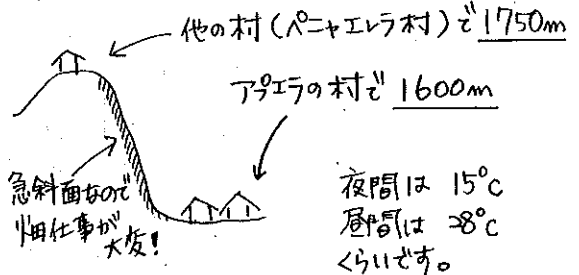 他の村(ペニャエレラ村)で1750m
アプエラの村で 1600m
急斜面なので
畑仕事が
大変!
夜間は 15℃
昼間は 28℃
くらいです。